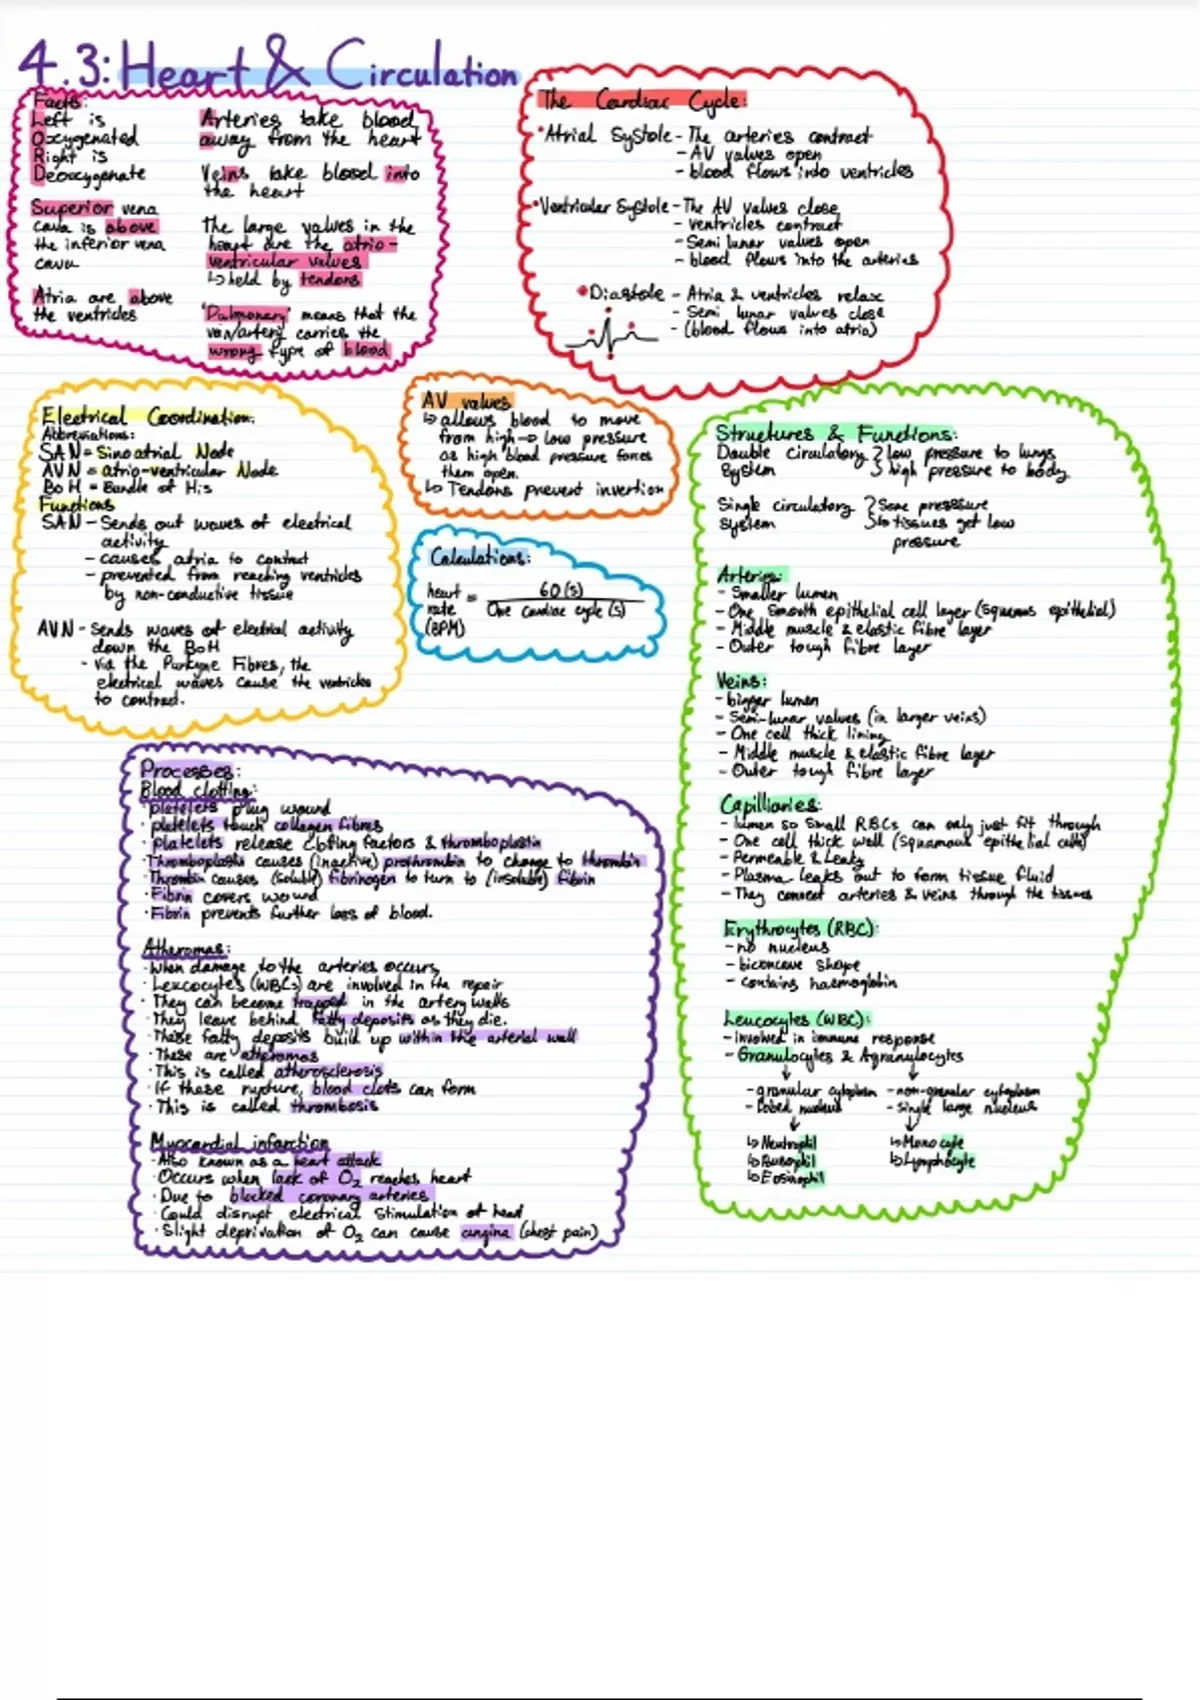 4.3: Heart & Circulation
Facts:
Left is
Oxygenated
Right is
Deoxygenate
Superior vena
cava is above
the inferior vena
cava
Atria are above
the ventricles
Arteries take blood
away from the heart
Veins take blood into
the heart
The large valves in the
heart are the atrio-
ventricular valves
↳held by tendons
'Pulmonary' means that the
vein/artery carries the
wrong type of blood
The Cardiac Cycle:
•Atrial Systole - The arteries contract
- AV valves open
- blood flows into ventricles
•Ventricular Systole - The AV valves close
- ventricles contract
- Semi lunar valves open
- blood flows into the arteries
•Diastole - Atria & ventricles relax
- Semi lunar valves close
- (blood flows into atria)
Electrical Coordination:
Abbreviations:
SAN = Sinoatrial Node
AVN = atrio-ventricular Node
BoH = Bundle of His
Functions
SAN - Sends out waves of electrical
activity
- causes atria to contract
- prevented from reaching ventricles
by non-conductive tissue
AVN - Sends waves of electrial activity
down the BoH
- Via the Purkyne Fibres, the
electrical waves cause the ventricles
to contract.
AV valves
↳ allows blood to move
from high → low pressure
as high blood pressure forces
them open.
↳ Tendons prevent invertion
Calculations:
heart rate (BPM) = 60(s) / One cardiac cycle (s)
Structures & Functions:
Double circulatory } low pressure to lungs
System } high pressure to body
Single circulatory } Same presssure
System } ↳ tissues get low
pressure
Arteries:
- Smaller lumen
- One Smooth epithelial cell layer (squamous epithelial)
- Middle muscle & elastic fibre layer
- Outer tough fibre layer
Veins:
- bigger lumen
- Semi-lunar valves (in larger veins)
- One cell thick lining
- Middle muscle & elastic fibre layer
- Outer tough fibre layer
Capilliaries:
- lumen so small RBCs can only just fit through
- One cell thick wall (squamous epithelial cells)
- Permeable & Leaky
- Plasma leaks out to form tissue fluid
- They connect arteries & veins through the tissues
Erythrocytes (RBC):
- no nucleus
- biconcave shape
- contains haemoglobin
Leucocytes (WBC):
- involved in immune response
- Granulocytes & Agranulocytes
- granular cytoplasm - non-granular cytoplasm
- lobed nucleus - single large nucleus
↳ Neutrophil ↳ Monocyte
↳ Basophil ↳ Lymphocyte
↳ Eosinophil
Processes:
Blood clotting:
· platelets plug wound
· platelets touch collagen fibres
· platelets release clotting factors & thromboplastin
· Thromboplastin causes (inactive) prothrombin to change to thrombin
· Thrombin causes (soluble) fibrinogen to turn to (insoluble) fibrin
· Fibrin covers wound
· Fibrin prevents further loss of blood.
Atheromas:
· When damage to the arteries occurs,
· Leucocytes (WBCs) are involved in the repair
· They can become trapped in the artery walls
· They leave behind fatty deposits as they die.
· These fatty deposits build up within the arterial wall
· These are atheromas
· This is called atherosclerosis
· If these rupture, blood clots can form
· This is called thrombosis
Myocardial infarction
· Also known as a heart attack
· Occurs when lack of O₂ reaches heart
· Due to blocked coronary arteries
· Could disrupt electrical stimulation of heart
· Slight deprivation of O₂ can cause angina (chest pain)